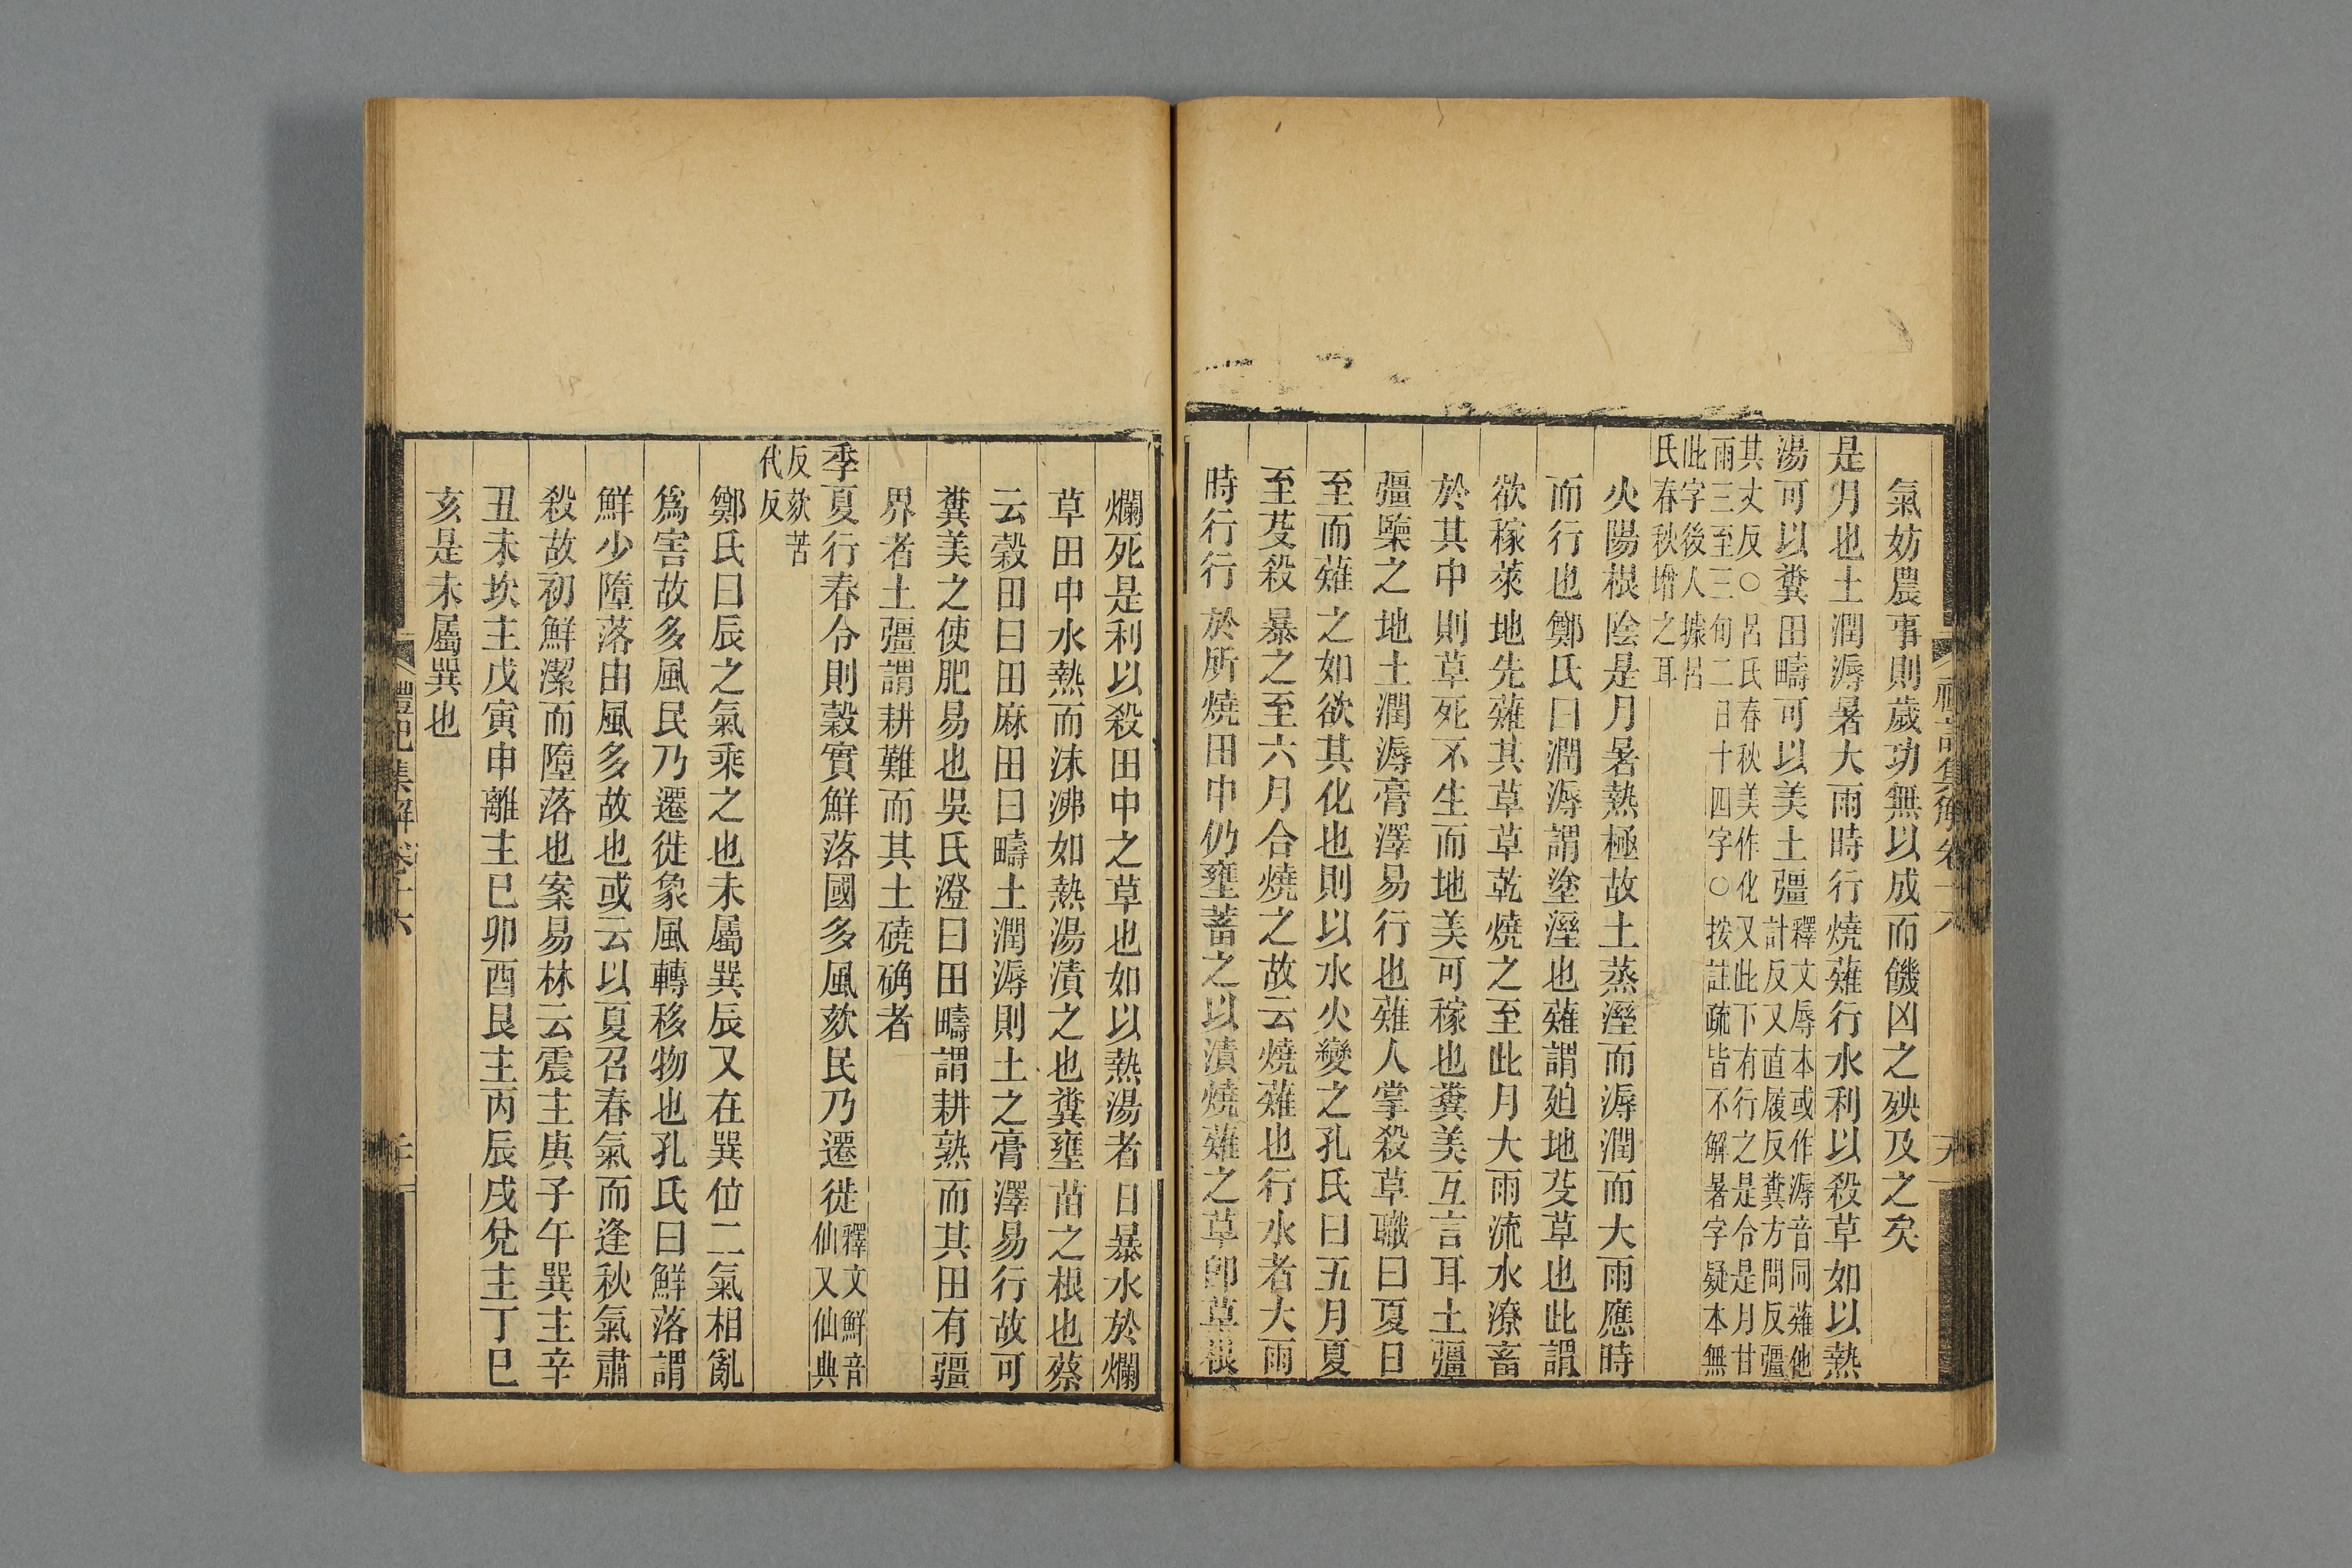 氣妨農事則歲功無以成而饑凶之殃及之矣
是月也土潤溽暑大雨時行燒薙行水利以殺草如以熱
湯可以糞田疇可以美土彊
釋文辱本或作溽音同薙他
計反又直履反糞方問反彊
其丈反○呂氏春秋美作化又此下有行之是令是月甘
雨三至三旬二日十四字○按註疏皆不解暑字疑本無
此字後人據呂
氏春秋增之耳
火陽根陰是月暑熱極故土蒸溼而溽潤而大雨應時
而行也鄭氏曰潤溽謂塗溼也薙謂廹地芟草也此謂
欲稼萊地先薙其草草乾燒之至此月大雨流水潦畜
於其中則草死不生而地美可稼也糞美互言耳土彊
彊㯺之地土潤溽膏澤易行也薙人掌殺草職曰夏日
至而薙之如欲其化也則以水火變之孔氏曰五月夏
至芟殺暴之至六月合燒之故云燒薙也行水者大雨
時行行於所燒田中仍壅蓄之以漬燒薙之草卽草根
禮記集解卷十六
爛死是利以殺田中之草也如以熱湯者日暴水於爛
草田中水熱而沫沸如熱湯漬之也糞壅苗之根也蔡
云穀田曰田麻田曰疇土潤溽則土之膏澤易行故可
糞美之使肥易也吳氏澄曰田疇謂耕熟而其田有疆
界者土彊謂耕難而其土磽确者
季夏行春令則穀實鮮落國多風欬民乃遷徙
釋文鮮音
仙又仙典
反欬苦
代反
鄭氏曰辰之氣乘之也未屬巽辰又在巽位二氣相亂
爲害故多風民乃遷徙象風轉移物也孔氏曰鮮落謂
鮮少墮落由風多故也或云以夏召春氣而逢秋氣肅
殺故初鮮潔而墮落也案易林云震主庚子午巽主辛
丑未坎主戊寅申離主巳卯酉艮主丙辰戌兌主丁巳
亥是未屬巽也
禮記集解卷十六